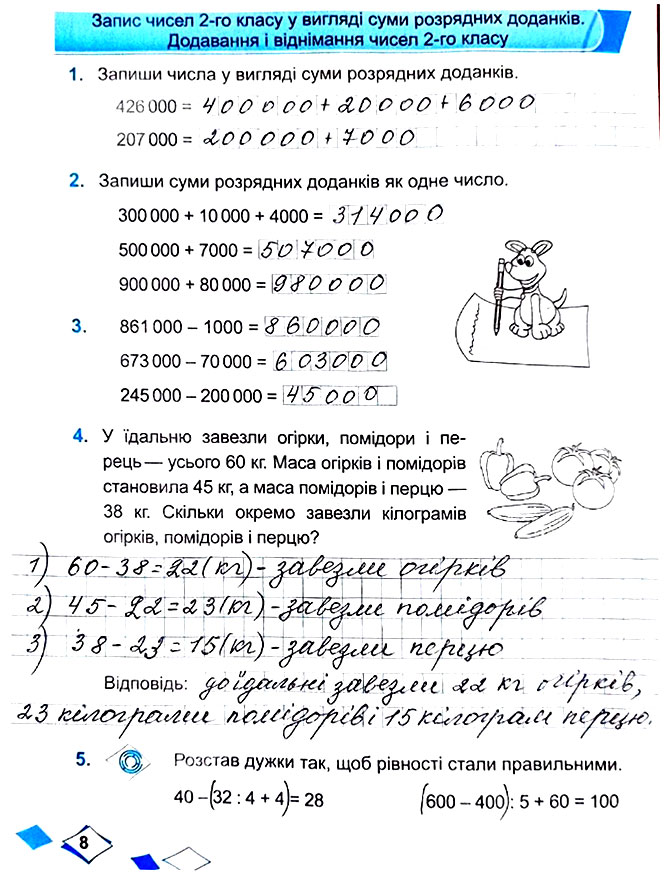 Запис чисел 2-го класу у вигляді суми розрядних доданків.
Додавання і віднімання чисел 2-го класу
1. Запиши числа у вигляді суми розрядних доданків.
426 000 = 400000+20000+6000
207 000 = 200000+7000
2. Запиши суми розрядних доданків як одне число.
300 000 + 10 000 + 4000 = 314000
500 000 + 7000 = 507000
900 000 + 80 000 = 980000
3. 861 000 – 1000 = 860000
673 000 – 70 000 = 603000
245 000 – 200 000 = 45000
4. У їдальню завезли огірки, помідори і пе-
рець — усього 60 кг. Маса огірків і помідорів
становила 45 кг, а маса помідорів і перцю —
38 кг. Скільки окремо завезли кілограмів
огірків, помідорів і перцю?
1) 60-38=22(кг)-завезли огірків
2) 45-22=23(кг)-завезли помідорів
3) 38-23=15(кг)-завезли перцю
Відповідь: до їдальні завезли 22 кг огірків,
23 кілограми помідорів і 15 кілограм перцю.
5. Розстав дужки так, щоб рівності стали правильними.
40 –(32 : 4 + 4)= 28 (600 – 400): 5 + 60 = 100
8